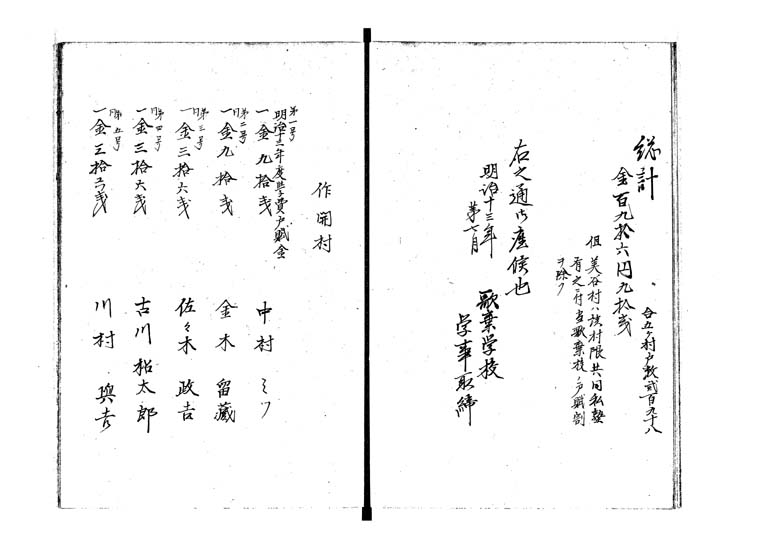 総計
合五ヶ村戸数弐百九十八
金百九拾六円九拾戔
但美谷村ハ該村限共同私塾
有之ニ付当歌棄校ノ戸賦割
ヲ除ク
右之通御座候也
明治十三年
第七月
歌棄学校
学事取締
作開村
第一号
明治十三年度学費戸賦金
一金九拾戔
中村ミツ
同第二号
一金九拾戔
金木留蔵
同第三号
一金三拾六戔
佐々木政吉
同第四号
一金三拾六戔
古川松太郎
同第五号
川村興吉